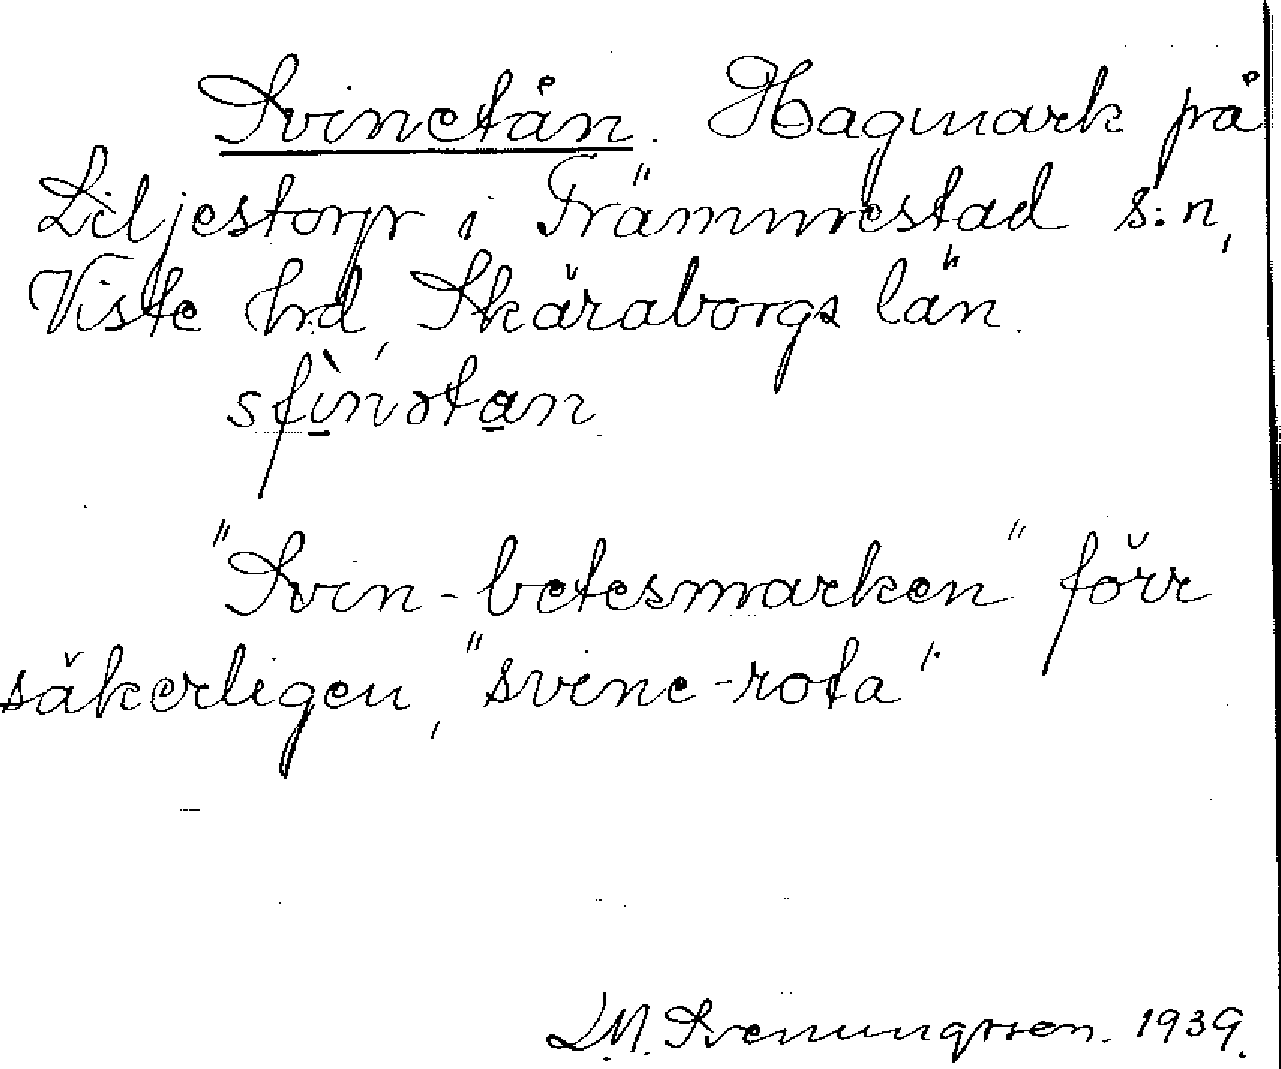 Svinetån. Hagmark på
Liljestorp i Främmestad s:n,
Viste hd, Skaraborgs län.
"Svin-betesmarken" förr
säkerligen, "svine-rota".
L.M. Svenungsson. 1939.